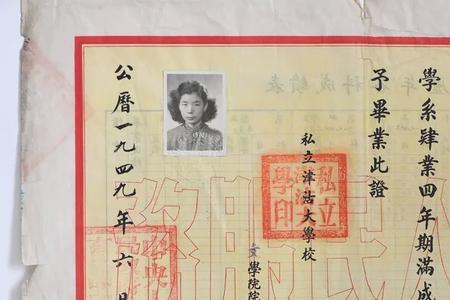 學系肄業四年期滿成
予畢業此證
私立津沽大學校
文學院院
公曆一九四九年六月
私立
學印
民服務